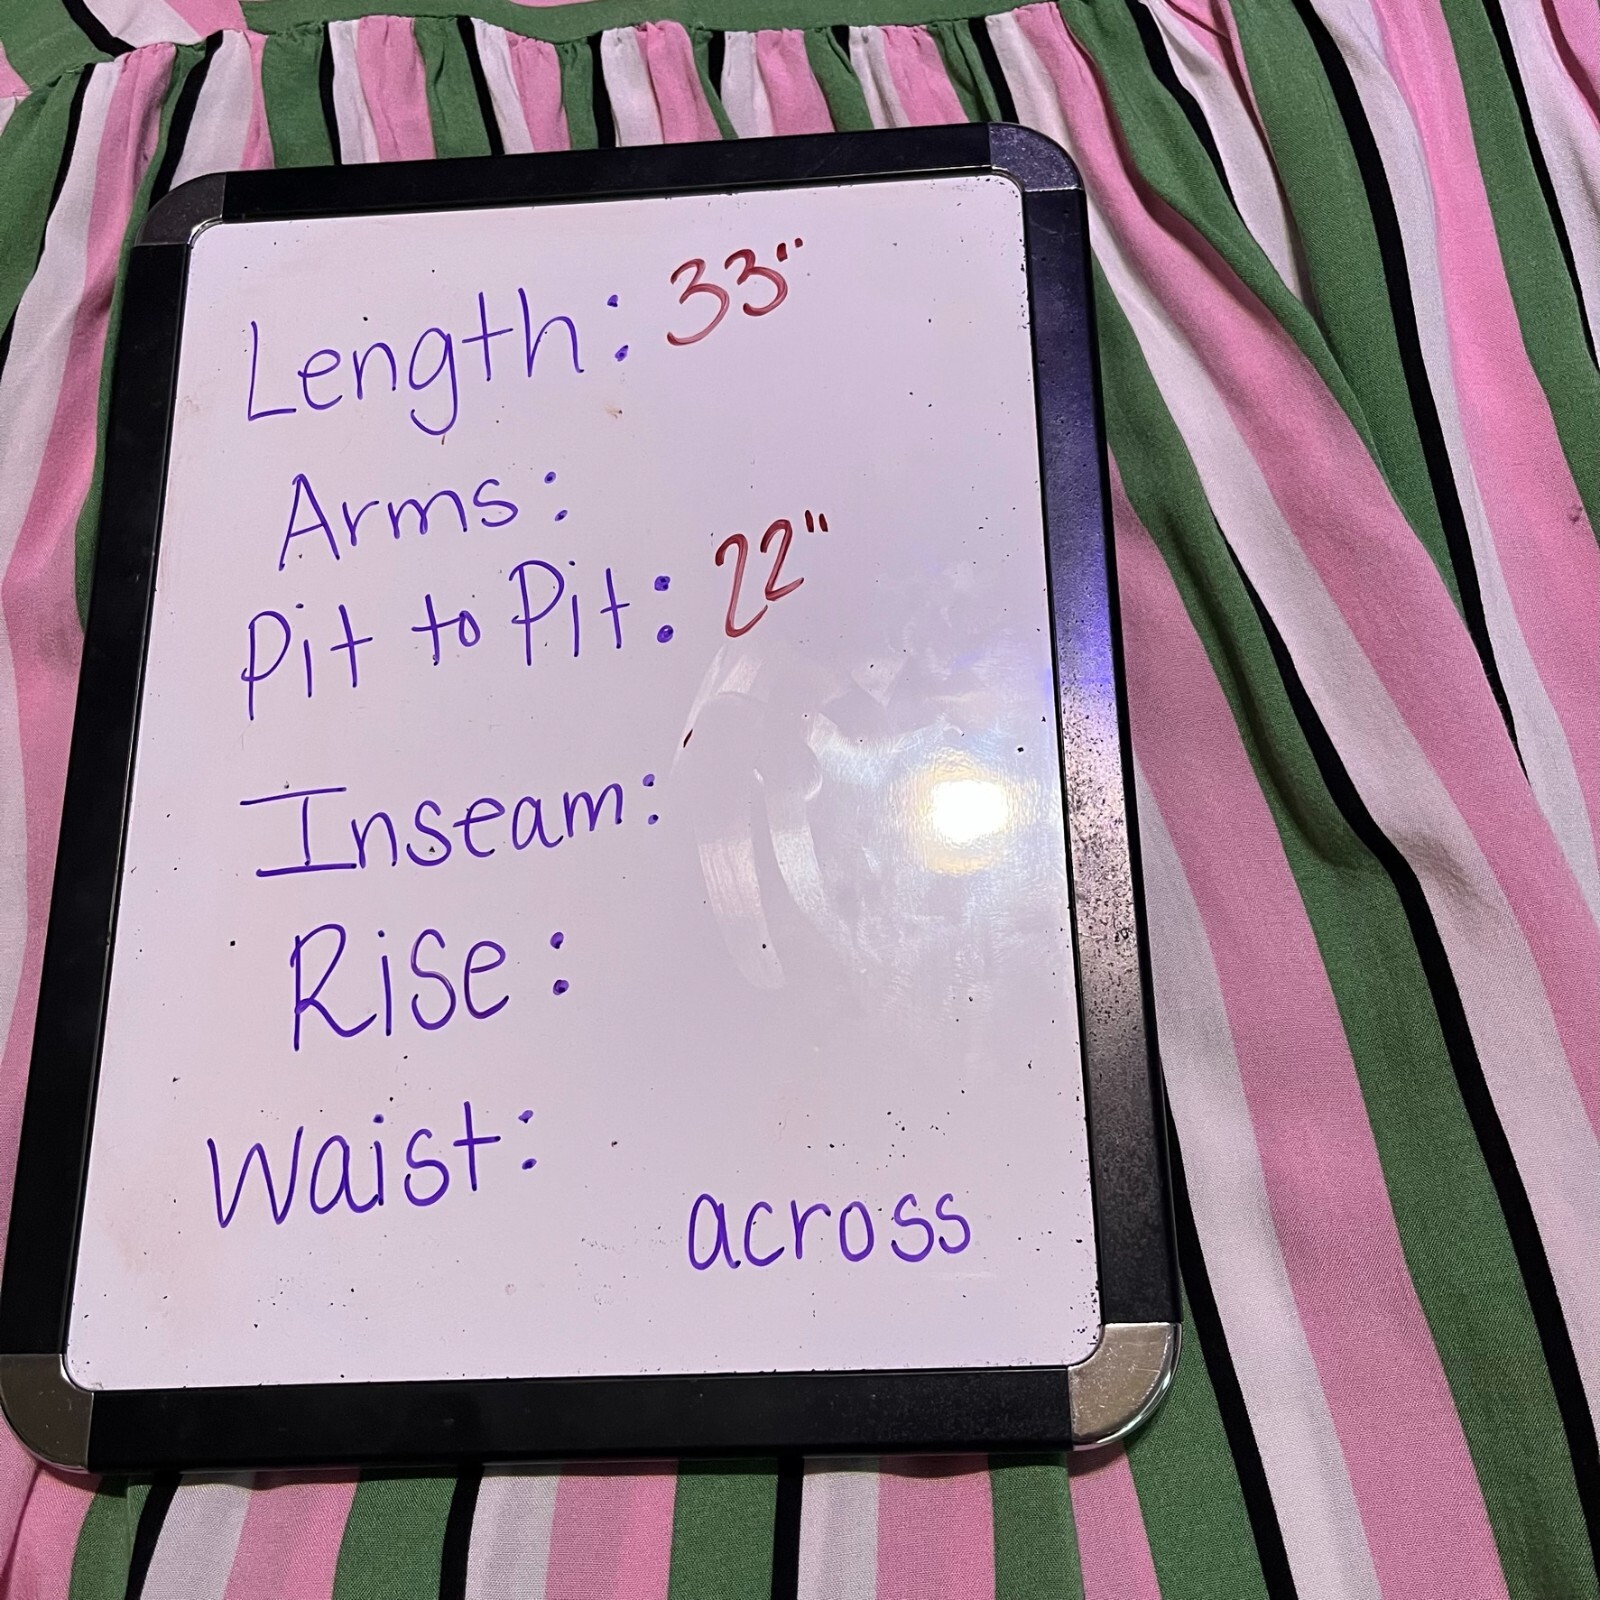 Length: 33"
Arms:
Pit to Pit: 22"
Inseam:
Rise:
Waist:
across